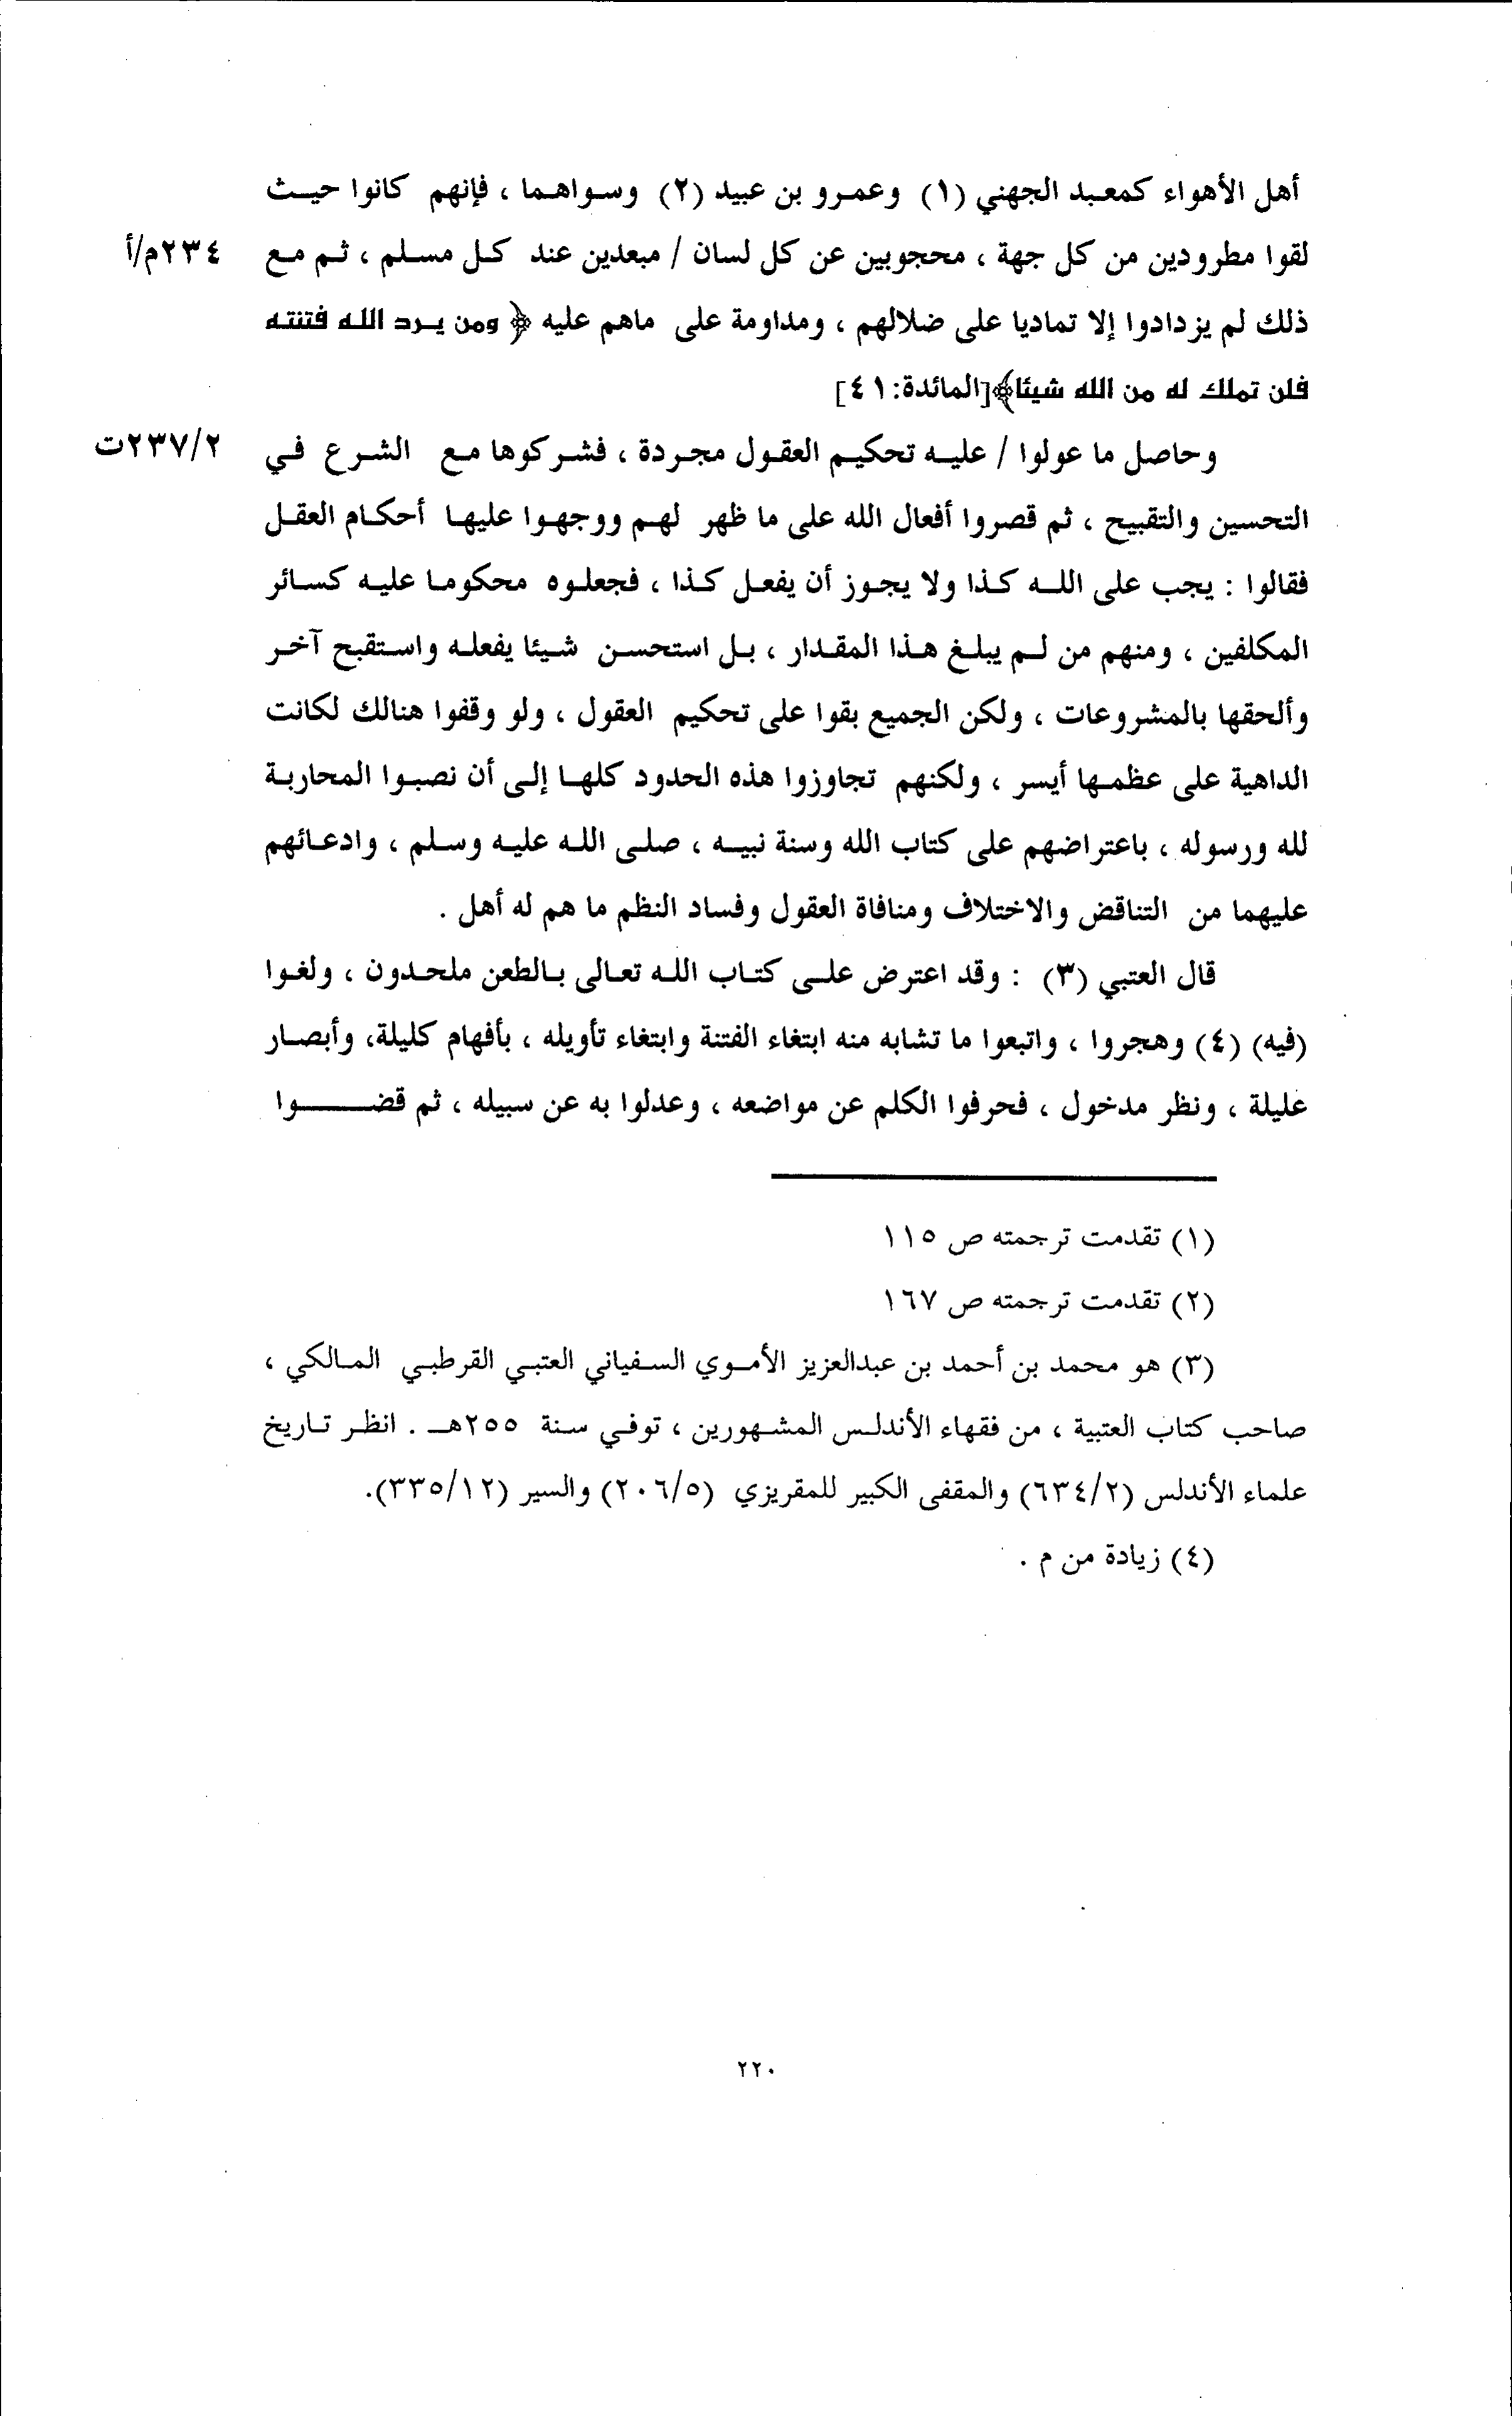 أهل الأهواء كمعبد الجهني (١) وعمرو بن عبيد (٢) وسواهما ، فإنهم كانوا حيث
لقوا مطرودين من كل جهة ، محجوبين عن كل لسان / مبعدين عند كل مسلم ، ثم مع ٢٣٤م/أ
ذلك لم يزدادوا إلا تماديا على ضلالهم ، ومداومة على ماهم عليه ﴿ ومن يرد الله فتنته
فلن تملك له من الله شيئا﴾[المائدة:٤١]
وحاصل ما عولوا / عليه تحكيم العقول مجردة ، فشركوها مع الشرع في ٢٣٧/٢ت
التحسين والتقبيح ، ثم قصروا أفعال الله على ما ظهر لهم ووجهوا عليها أحكام العقل
فقالوا : يجب على الله كذا ولا يجوز أن يفعل كذا ، فجعلوه محكوما عليه كسائر
المكلفين ، ومنهم من لم يبلغ هذا المقدار ، بل استحسن شيئا يفعله واستقبح آخر
وألحقها بالمشروعات ، ولكن الجميع بقوا على تحكيم العقول ، ولو وقفوا هنالك لكانت
الداهية على عظمها أيسر ، ولكنهم تجاوزوا هذه الحدود كلها إلى أن نصبوا المحاربة
لله ورسوله ، باعتراضهم على كتاب الله وسنة نبيه ، صلى الله عليه وسلم ، وادعائهم
عليهما من التناقض والاختلاف ومنافاة العقول وفساد النظم ما هم له أهل .
قال العتبي (٣) : وقد اعترض على كتاب الله تعالى بالطعن ملحدون ، ولغوا
(فيه) (٤) وهجروا ، واتبعوا ما تشابه منه ابتغاء الفتنة وابتغاء تأويله ، بأفهام كليلة، وأبصار
عليلة ، ونظر مدخول ، فحرفوا الكلم عن مواضعه ، وعدلوا به عن سبيله ، ثم قضــــوا
(١) تقدمت ترجمته ص ١١٥
(٢) تقدمت ترجمته ص ١٦٧
(٣) هو محمد بن أحمد بن عبدالعزيز الأموي السفياني العتبي القرطبي المالكي ،
صاحب كتاب العتبية ، من فقهاء الأندلس المشهورين ، توفي سنة ٢٥٥هـ . انظر تاريخ
علماء الأندلس (٦٣٤/٢) والمقفى الكبير للمقريزي (٢٠٦/٥) والسير (٣٣٥/١٢).
(٤) زيادة من م .
٢٢٠